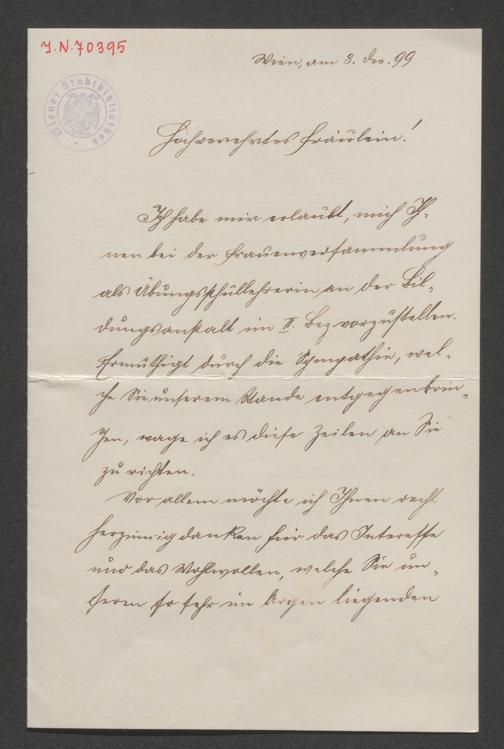 J.N. 70395
Wiener Stadtbibliothek
Wien, am 3. Dez. 99
Hochverehrtes Fräulein!
Ich habe mir erlaubt, mich Ih-
nen bei der Frauenversammlung
als Übungsschullehrerin an der Bil-
dungsanstalt im II. Bez vorzustellen.
Ermuthigt durch die Sympathie, wel-
che Sie unserem Stande entgegenbrin-
gen, wage ich es diese Zeilen an Sie
zu richten.
Vor allem möchte ich Ihnen recht
herzinnig danken für das Interesse
und das Wohlwollen, welche Sie un-
seren so sehr im Argen liegenden